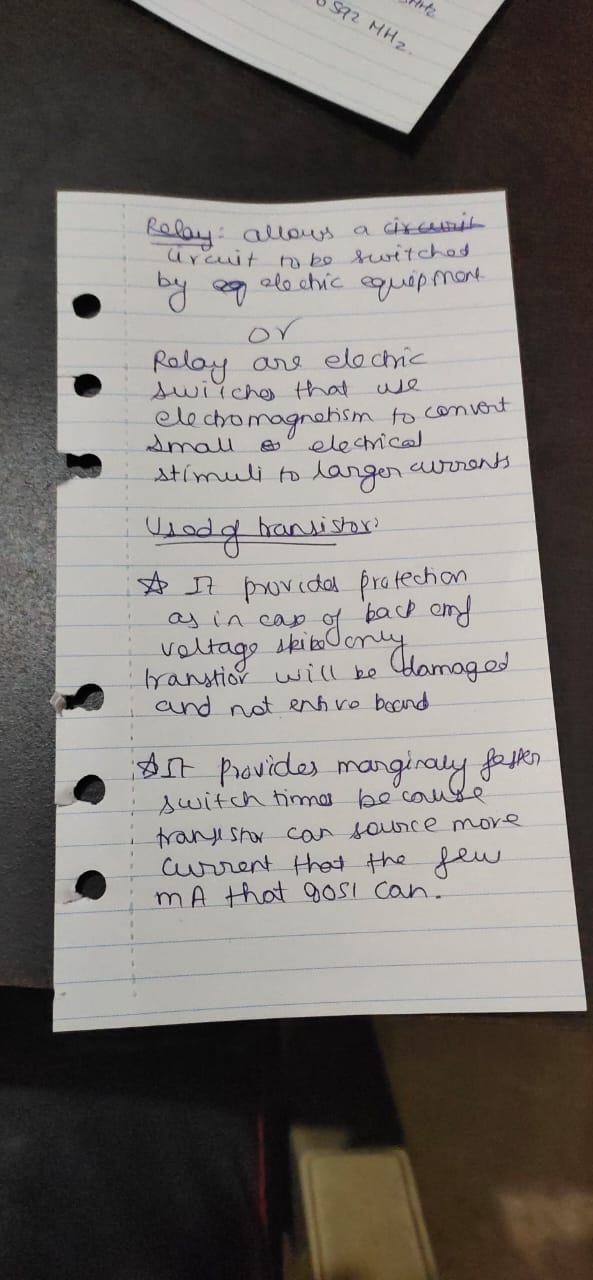 592 MHz.
Relay: allows a circuit
circuit to be switched
by eq electric equipment
or
Relay are electric
switches that use
electromagnetism to convert
small electrical
stimuli to larger currents
Used of transistor:
☆ It provides protection
as in case of back emf
voltage only
transtior will be damaged
and not entire board
☆ It provides marginaly faster
switch times because
transistor can source more
current that the few
mA that 9051 can.